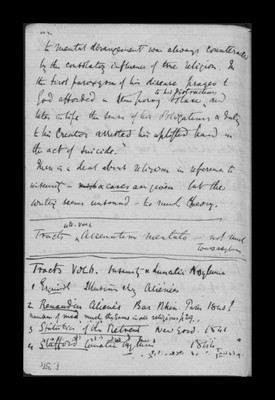 to mental derangement was always counteracted
by the consolatory influence of true religion. In
the first paroxysm of his disease prayer to
to his distraction,
God afforded a temporary solace, and
later in life the sense of his obligations & duty
to his Creator arrested his uplifted hand in
the act of suicide."
There is a deal about religion in reference to
insanity — cases are given but the
writing seems unsound — too much theory.
Tracts Alienation mentale — not much
Tracts Vol 6. Insanity & Lunatic Asylums
1 Esquirol Illusions chez Aliénés
2. Renaudin Aliénés Bas Rhin. Paris 1840!
number of med. much the same in all religions p 29.
3 Statistics of the Retreat New Good. 1841
4 Stafford Lunatic Asylum 1844